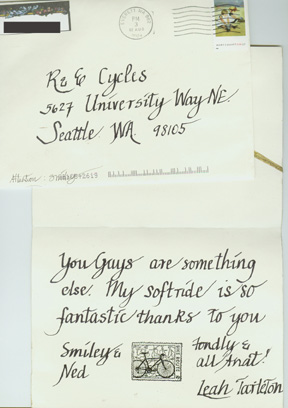 R & E Cycles
5627 University Way NE.
Seattle WA. 98105
Attention:
You Guys are something
else. My softride is so
fantastic thanks to you
Smiley &
Ned
Fondly &
all that!
Leah Tarleton